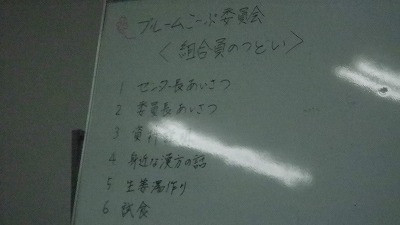 ブルームこーぷ委員会
<組合員のつどい>
1 センター長あいさつ
2 委員長あいさつ
3 資料
4 身近な漢方の話
5 生姜湯作り
6 試食